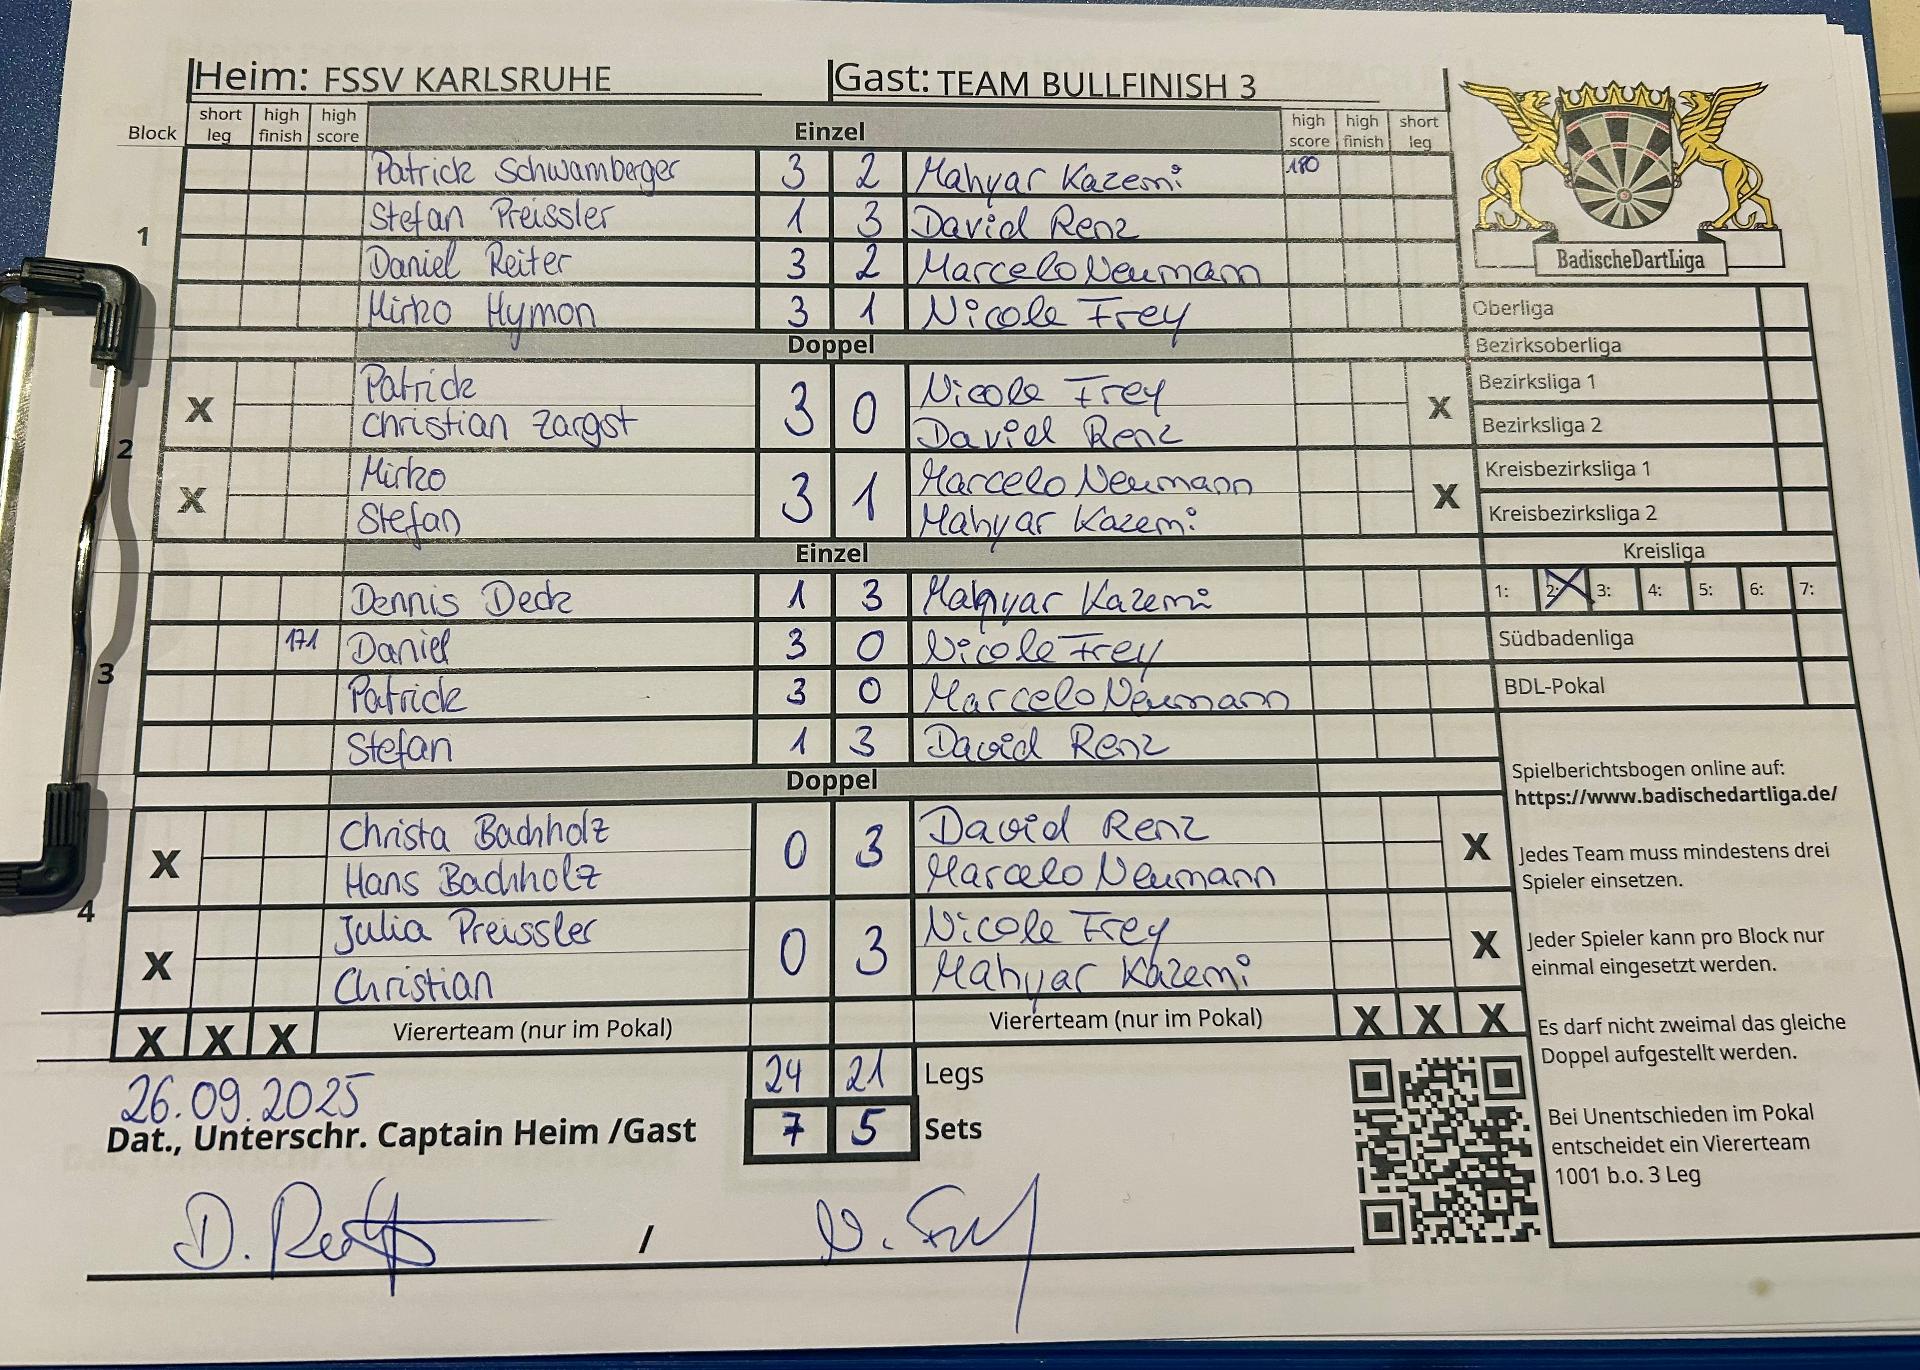 Heim: FSSV KARLSRUHE Gast: TEAM BULLFINISH 3
Block short leg high finish high score Einzel high score high finish short leg
1
Patrick Schwamberger 3 2 Mahyar Kazemi 180
Stefan Preissler 1 3 David Renz
Daniel Reiter 3 2 Marcelo Neumann
Mirko Hymon 3 1 Nicole Frey
Doppel
2
X Patrick 3 0 Nicole Frey X
Christian Zargst David Renz
X Mirko 3 1 Marcelo Neumann X
Stefan Mahyar Kazemi
Einzel
3
Dennis Deck 1 3 Mahyar Kazemi
171 Daniel 3 0 Nicole Frey
Patrick 3 0 Marcelo Neumann
Stefan 1 3 David Renz
Doppel
4
X Christa Bachholz 0 3 David Renz X
Hans Bachholz Marcelo Neumann
X Julia Preissler 0 3 Nicole Frey X
Christian Mahyar Kazemi
X X X Viererteam (nur im Pokal) Viererteam (nur im Pokal) X X X
24 21 Legs
7 5 Sets
26.09.2025
Dat., Unterschr. Captain Heim /Gast
/
BadischeDartLiga
Oberliga
Bezirksoberliga
Bezirksliga 1
Bezirksliga 2
Kreisbezirksliga 1
Kreisbezirksliga 2
Kreisliga
1: 2: 3: 4: 5: 6: 7:
Südbadenliga
BDL-Pokal
Spielberichtsbogen online auf:
https://www.badischedartliga.de/
Jedes Team muss mindestens drei
Spieler einsetzen.
Jeder Spieler kann pro Block nur
einmal eingesetzt werden.
Es darf nicht zweimal das gleiche
Doppel aufgestellt werden.
Bei Unentschieden im Pokal
entscheidet ein Viererteam
1001 b.o. 3 Leg